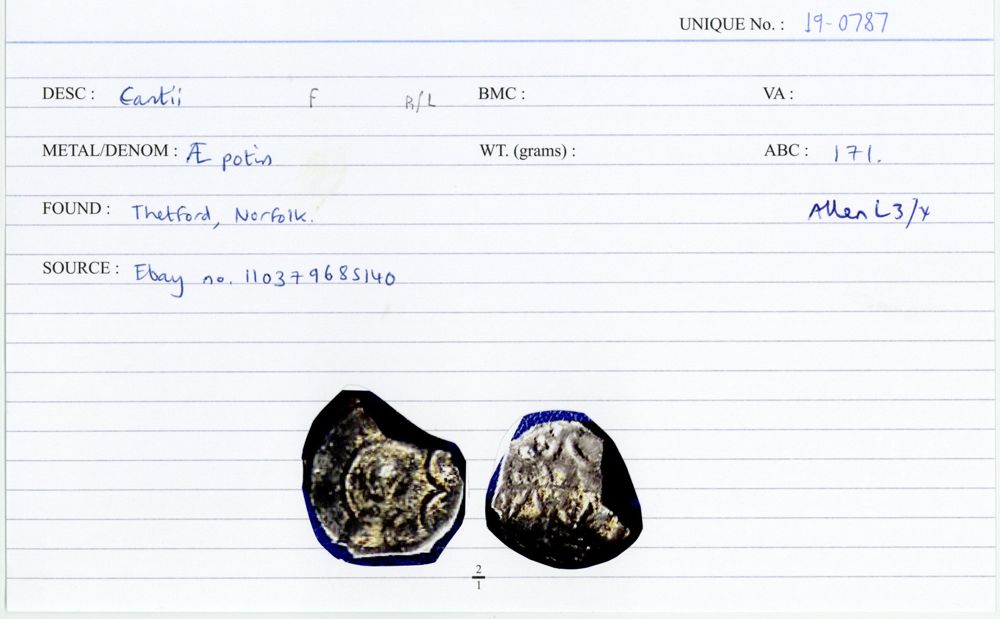 UNIQUE No. : 19-0787
DESC : Cantii F R/L BMC : VA :
METAL/DENOM : Æ potin WT. (grams) : ABC : 171.
FOUND : Thetford, Norfolk. Allen L3/x
SOURCE : Ebay no. 110379685140
2
1